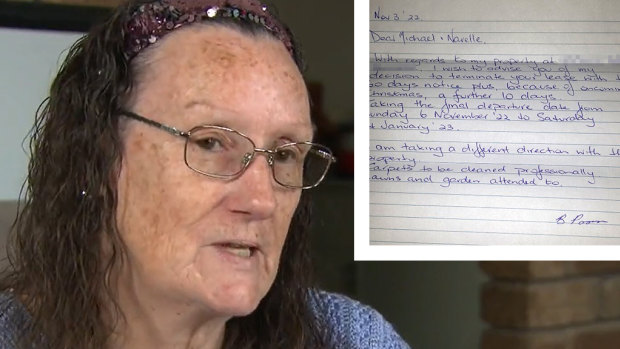 Nov 3 '22
Dear Michael + Narelle
With regards to my property at
I wish to advise you of my
decision to terminate your lease with t
days notice plus, because of
Christmas, a further 10 days.
aking the final departure date from
unday 6 November '22 to Saturday
January '23.
am taking a different direction with th
roperty.
arpets to be cleaned professionally
awns and garden attended to.